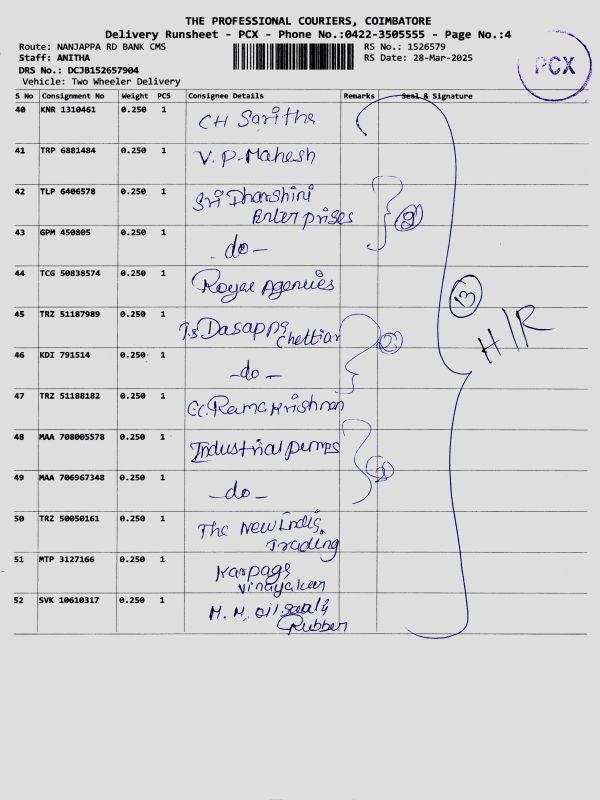 THE PROFESSIONAL COURIERS, COIMBATORE
Delivery Runsheet - PCX - Phone No.:0422-3505555 - Page No.:4
Route: NANJAPPA RD BANK CMS RS No.: 1526579
Staff: ANITHA RS Date: 28-Mar-2025
DRS No.: DCJB152657904
Vehicle: Two Wheeler Delivery
PCX
S No Consignment No Weight PCS Consignee Details Remarks Seal & Signature
40 KNR 1310461 0.250 1 CH Saritha
41 TRP 6881484 0.250 1 V. P. Mahesh
42 TLP 6406578 0.250 1 Sri Dharshini
Enterprises
43 GPM 450805 0.250 1 - do -
44 TCG 50838574 0.250 1 Royal Agencies
45 TRZ 51187989 0.250 1 Ts Dasappa
Chettiar
46 KDI 791514 0.250 1 - do -
47 TRZ 51188182 0.250 1 Ramakrishnan
48 MAA 708005578 0.250 1 Industrial pumps
49 MAA 706967348 0.250 1 - do -
50 TRZ 50050161 0.250 1 The New India
Trading
51 MTP 3127166 0.250 1 Karpaga
Vinayakar
52 SVK 10610317 0.250 1 M. M. oil seals
Rubber
13
H/R